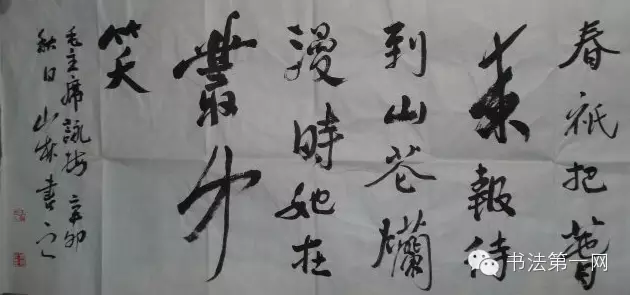 春祇把萅
來報待
到山花爛
漫時她在
叢中
笑
毛主席詠梅 辛卯
秋日山書之
书法第一网